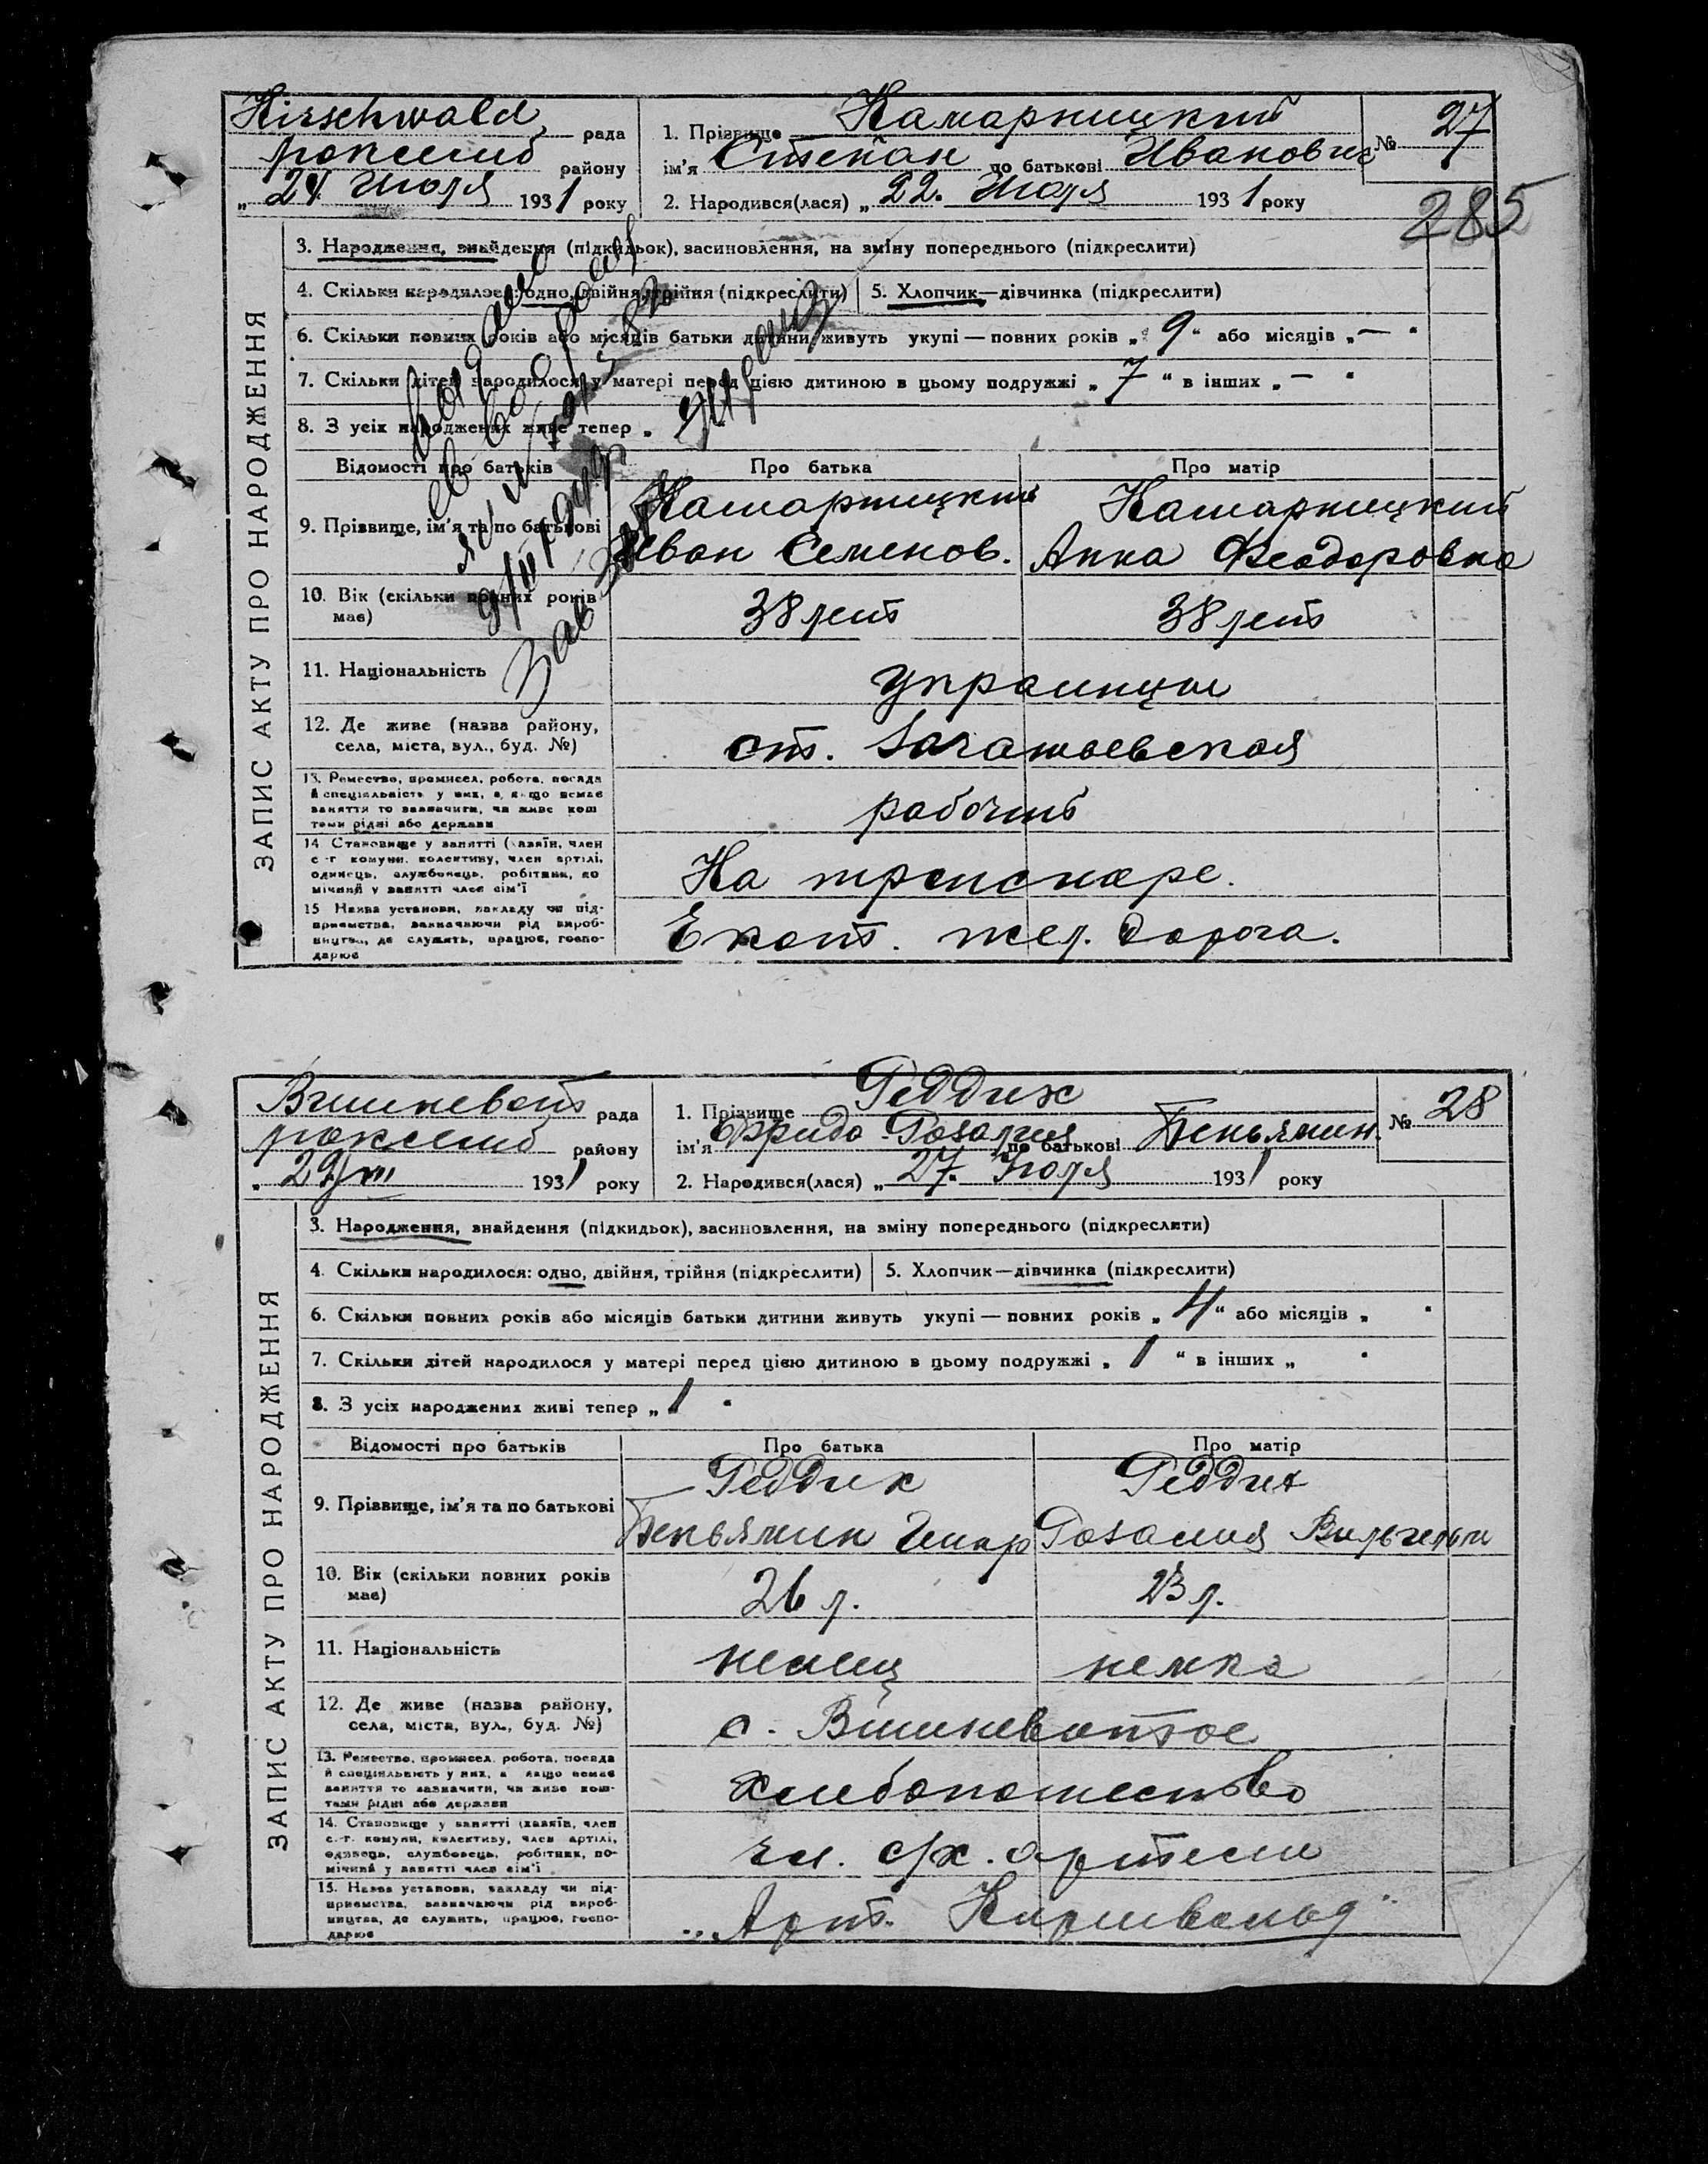 ЗАПИС АКТУ ПРО НАРОДЖЕННЯ
Hirschwald рада
району
„24 Июля 1931 року
1. Прізвище Камарницкий
ім'я Степан по батькові Иванович
№ 27
2. Народився(лася) „22. Июля 1931 року
285
3. Народження, знайдення (підкидьок), засиновлення, на зміну попереднього (підкреслити)
4. Скільки народилося: одно, двійня, трійня (підкреслити) 5. Хлопчик—дівчинка (підкреслити)
6. Скільки повних років або місяців батьки дитини живуть укупі — повних років „9“ або місяців „—“
7. Скільки дітей народилося у матері перед цією дитиною в цьому подружжі „7“ в інших „—“
8. З усіх народжених живе тепер „
Відомості про батьків Про батька Про матір
9. Прізвище, ім'я та по батькові
Камарницкий Камарницкий
Иван Семенов. Анна Феодоровна
10. Вік (скільки повних років має) 38 лет 38 лет
11. Національність украинцы
12. Де живе (назва району, села, міста, вул., буд. №) ст.
13. Ремество, промисел, робота, посада й спеціяльність у них, а якщо немає заняття то зазначити, чи живе коштами рідні або держави
рабочий
14. Становище у занятті (хазяїн, член с.-г. комуни, колективу, член артілі, одинець, службовець, робітник, помічний у занятті член сім'ї
На
15. Назва установи, закладу чи підприємства, зазначаючи рід виробництва, де служить, працює, господарює
Екат. жел. дорога.
ЗАПИС АКТУ ПРО НАРОДЖЕННЯ
рада
району
„29/VII 1931 року
1. Прізвище Геддих
ім'я Фрида Розалия по батькові Беньямин.
№ 28
2. Народився(лася) „27. Июля 1931 року
3. Народження, знайдення (підкидьок), засиновлення, на зміну попереднього (підкреслити)
4. Скільки народилося: одно, двійня, трійня (підкреслити) 5. Хлопчик—дівчинка (підкреслити)
6. Скільки повних років або місяців батьки дитини живуть укупі — повних років „4“ або місяців „ “
7. Скільки дітей народилося у матері перед цією дитиною в цьому подружжі „1“ в інших „ “
8. З усіх народжених живі тепер „1“
Відомості про батьків Про батька Про матір
9. Прізвище, ім'я та по батькові
Геддих Геддих
Беньямин Розалия Вильгельм
10. Вік (скільки повних років має) 26 л. 23 л.
11. Національність немец немка
12. Де живе (назва району, села, міста, вул., буд. №) с. Вишневатое
13. Ремество, промисел, робота, посада й спеціяльність у них, а якщо немає заняття то зазначити, чи живе коштами рідні або держави
хлебопашество
14. Становище у занятті (хазяїн, член с.-г. комуни, колективу, член артілі, одинець, службовець, робітник, помічний у занятті член сім'ї
чл. с/х. артели
15. Назва установи, закладу чи підприємства, зазначаючи рід виробництва, де служить, працює, господарює
„Арт. Киршвальд“